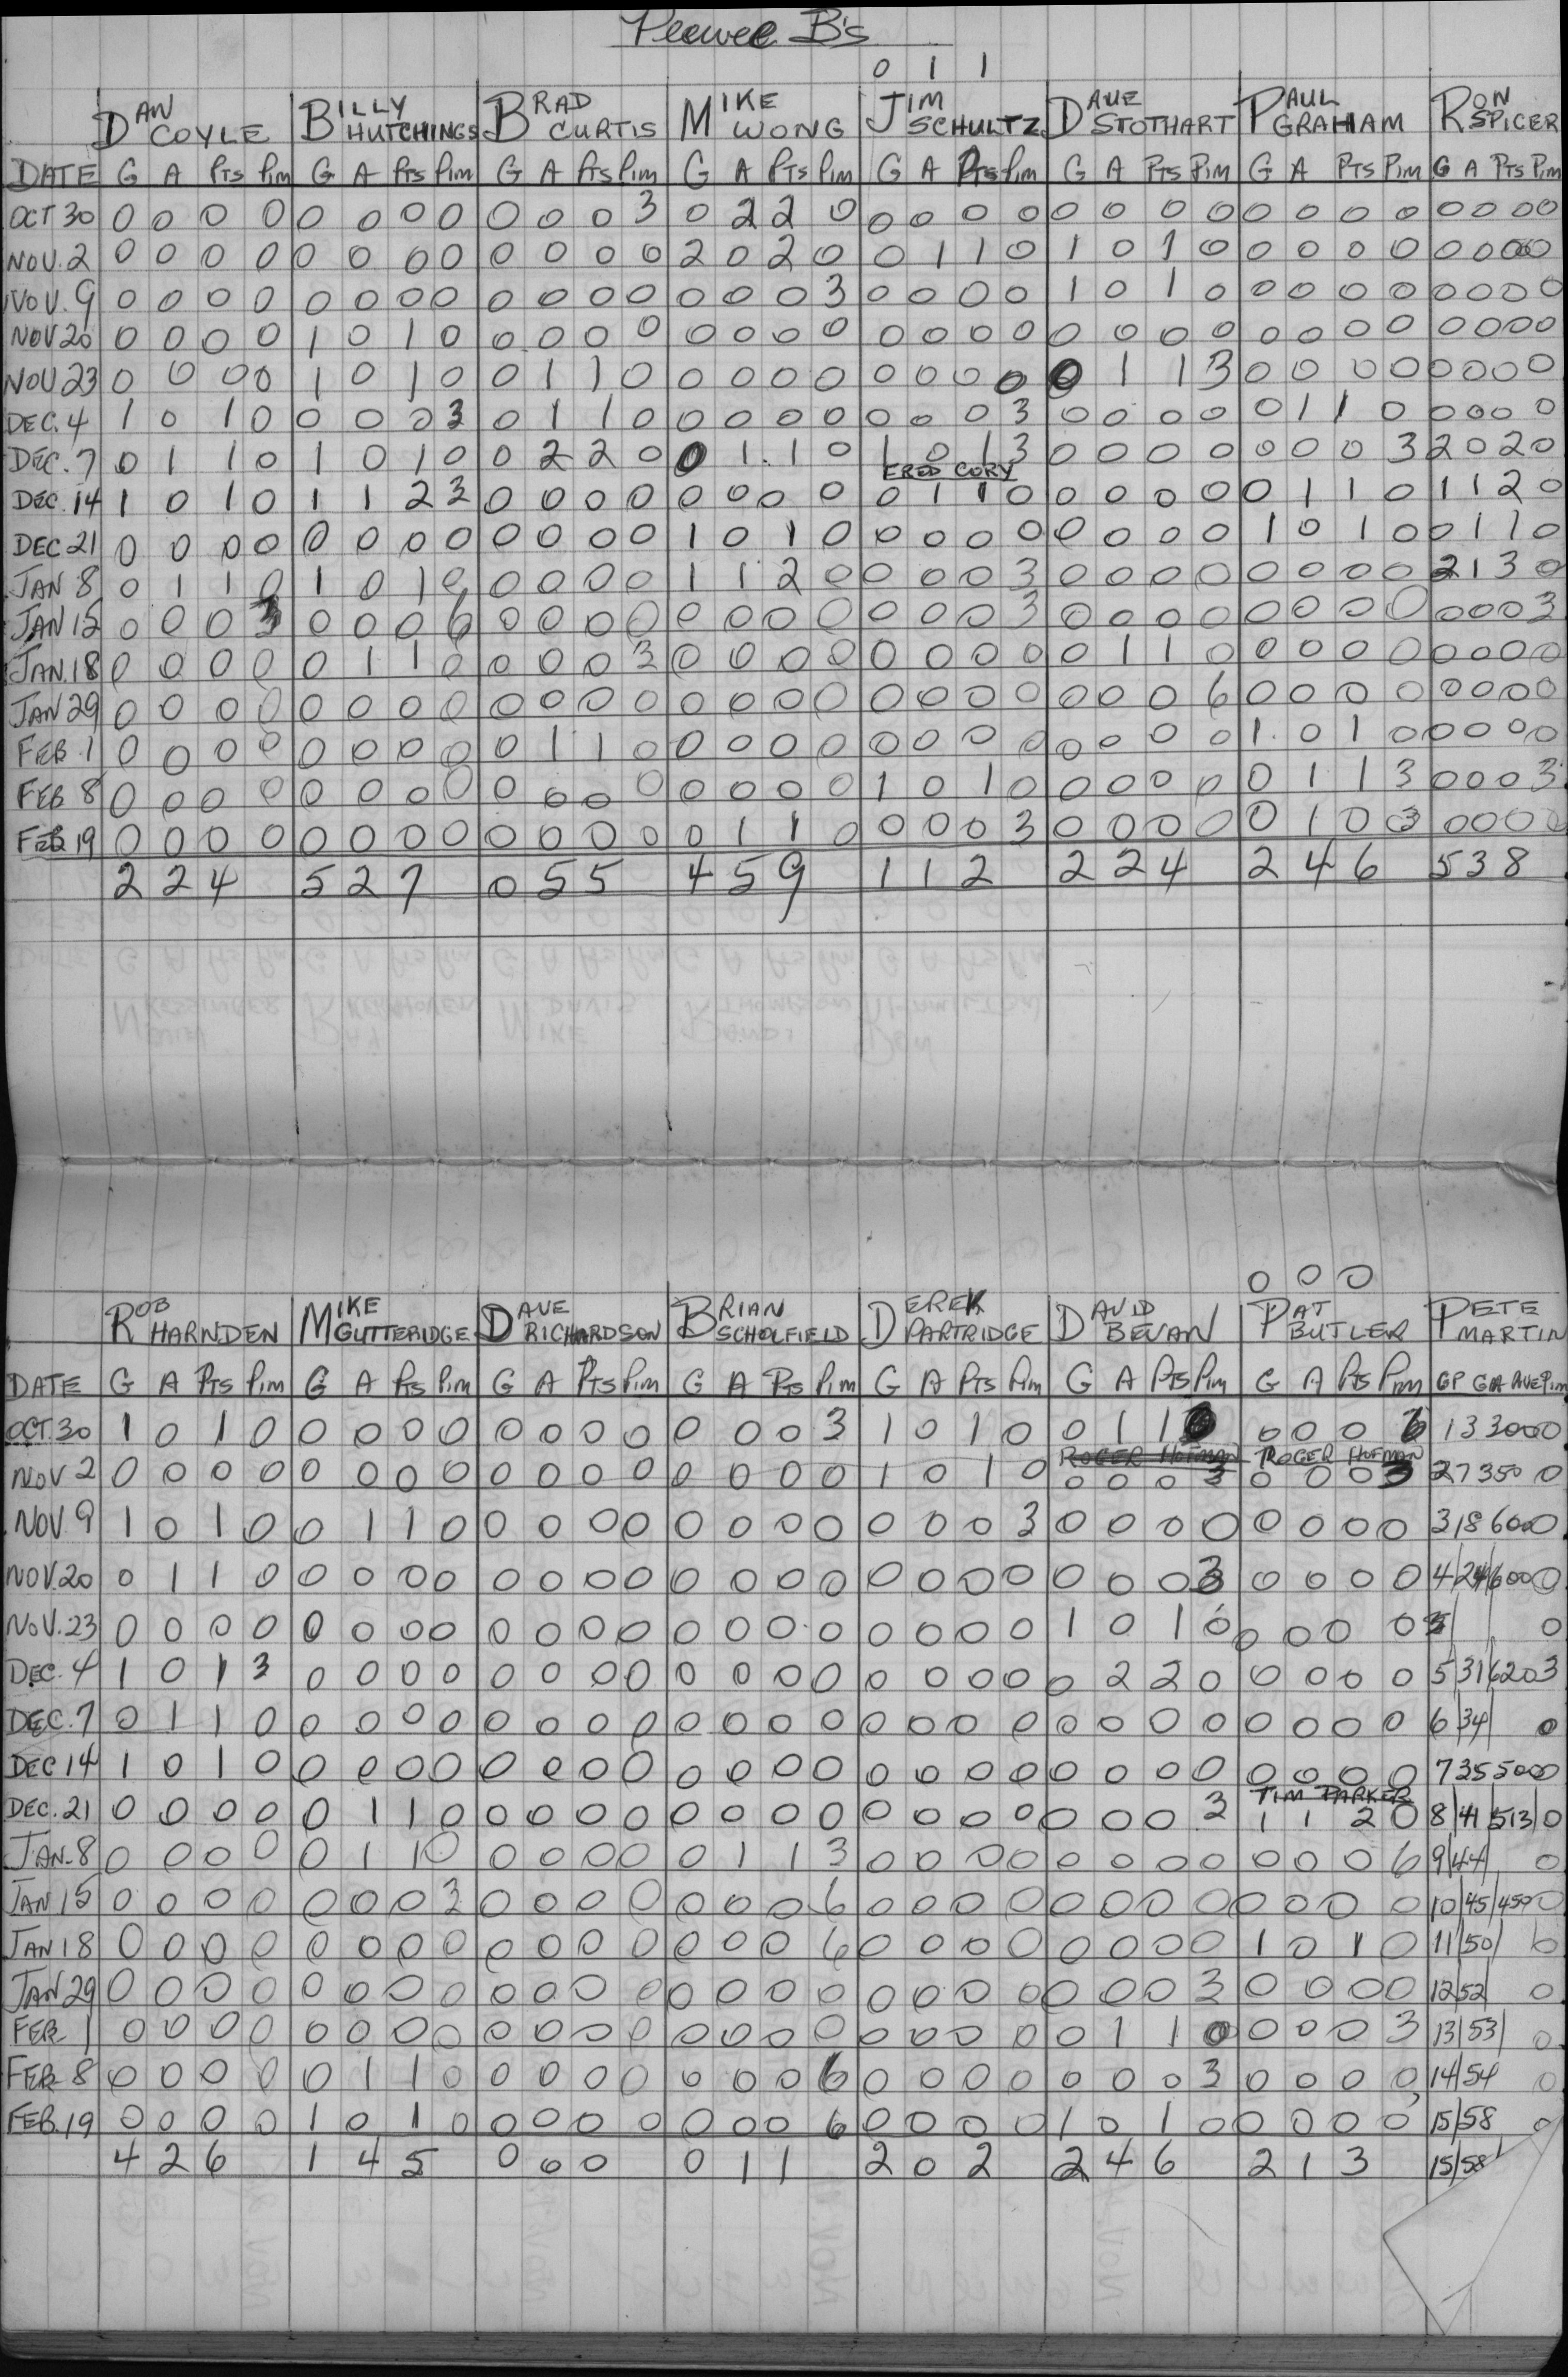 Peewee B's
0 1 1
DAN COYLE BILLY HUTCHINGS BRAD CURTIS MIKE WONG JIM SCHULTZ DAVE STOTHART PAUL GRAHAM RON SPICER
DATE G A Pts Pim G A Pts Pim G A Pts Pim G A Pts Pim G A Pts Pim G A Pts Pim G A Pts Pim G A Pts Pim
OCT 30 0 0 0 0 0 0 0 0 0 0 0 3 0 2 2 0 0 0 0 0 0 0 0 0 0 0 0 0 0 0 0 0
NOV. 2 0 0 0 0 0 0 0 0 0 0 0 0 2 0 2 0 0 1 1 0 1 0 1 0 0 0 0 0 0 0 0 0
NOV. 9 0 0 0 0 0 0 0 0 0 0 0 0 0 0 0 3 0 0 0 0 1 0 1 0 0 0 0 0 0 0 0 0
NOV 20 0 0 0 0 1 0 1 0 0 0 0 0 0 0 0 0 0 0 0 0 0 0 0 0 0 0 0 0 0 0 0 0
NOV 23 0 0 0 0 1 0 1 0 0 1 1 0 0 0 0 0 0 0 0 0 0 1 1 3 0 0 0 0 0 0 0 0
DEC. 4 1 0 1 0 0 0 0 3 0 1 1 0 0 0 0 0 0 0 0 3 0 0 0 0 0 1 1 0 0 0 0 0
DEC. 7 0 1 1 0 1 0 1 0 0 2 2 0 0 1 1 0 1 0 1 3 0 0 0 0 0 0 0 3 2 0 2 0
FRED CORY
DEC. 14 1 0 1 0 1 1 2 3 0 0 0 0 0 0 0 0 0 1 1 0 0 0 0 0 0 1 1 0 1 1 2 0
DEC 21 0 0 0 0 0 0 0 0 0 0 0 0 1 0 1 0 0 0 0 0 0 0 0 0 1 0 1 0 0 1 1 0
JAN 8 0 1 1 0 1 0 1 0 0 0 0 0 1 1 2 0 0 0 0 3 0 0 0 0 0 0 0 0 2 1 3 0
JAN 15 0 0 0 3 0 0 0 6 0 0 0 0 0 0 0 0 0 0 0 3 0 0 0 0 0 0 0 0 0 0 0 3
JAN. 18 0 0 0 0 0 1 1 0 0 0 0 3 0 0 0 0 0 0 0 0 0 1 1 0 0 0 0 0 0 0 0 0
JAN 29 0 0 0 0 0 0 0 0 0 0 0 0 0 0 0 0 0 0 0 0 0 0 0 6 0 0 0 0 0 0 0 0
FEB 1 0 0 0 0 0 0 0 0 0 1 1 0 0 0 0 0 0 0 0 0 0 0 0 0 1 0 1 0 0 0 0 0
FEB 8 0 0 0 0 0 0 0 0 0 0 0 0 0 0 0 0 1 0 1 0 0 0 0 0 0 1 1 3 0 0 0 3
FEB 19 0 0 0 0 0 0 0 0 0 0 0 0 0 1 1 0 0 0 0 3 0 0 0 0 0 1 0 3 0 0 0 0
2 2 4 5 2 7 0 5 5 4 5 9 1 1 2 2 2 4 2 4 6 5 3 8
0 0 0
ROB HARNDEN MIKE GUTTERIDGE DAVE RICHARDSON BRIAN SCHOLFIELD DEREK PARTRIDGE DAVID BEVAN PAT BUTLER PETE MARTIN
DATE G A Pts Pim G A Pts Pim G A Pts Pim G A Pts Pim G A Pts Pim G A Pts Pim G A Pts Pim GP GA AVE Pim
OCT. 30 1 0 1 0 0 0 0 0 0 0 0 0 0 0 0 3 1 0 1 0 0 1 1 0 0 0 0 6 1 3 3000
ROGER HOFMAN ROGER HOFMAN
NOV 2 0 0 0 0 0 0 0 0 0 0 0 0 0 0 0 0 1 0 1 0 0 0 0 3 0 0 0 3 2 7 350 0
NOV. 9 1 0 1 0 0 1 1 0 0 0 0 0 0 0 0 0 0 0 0 3 0 0 0 0 0 0 0 0 3 18 600 0
NOV. 20 0 1 1 0 0 0 0 0 0 0 0 0 0 0 0 0 0 0 0 0 0 0 0 3 0 0 0 0 4 24 600 0
NOV. 23 0 0 0 0 0 0 0 0 0 0 0 0 0 0 0 0 0 0 0 0 1 0 1 0 0 0 0 0 0
DEC. 4 1 0 1 3 0 0 0 0 0 0 0 0 0 0 0 0 0 0 0 0 0 2 2 0 0 0 0 0 5 31 620 3
DEC. 7 0 1 1 0 0 0 0 0 0 0 0 0 0 0 0 0 0 0 0 0 0 0 0 0 0 0 0 0 6 34 0
DEC 14 1 0 1 0 0 0 0 0 0 0 0 0 0 0 0 0 0 0 0 0 0 0 0 0 0 0 0 0 7 35 500 0
TIM PARKER
DEC. 21 0 0 0 0 0 1 1 0 0 0 0 0 0 0 0 0 0 0 0 0 0 0 0 3 1 1 2 0 8 41 513 0
JAN. 8 0 0 0 0 0 1 1 0 0 0 0 0 0 1 1 3 0 0 0 0 0 0 0 0 0 0 0 6 9 44 0
JAN 15 0 0 0 0 0 0 0 3 0 0 0 0 0 0 0 6 0 0 0 0 0 0 0 0 0 0 0 0 10 45 450 0
JAN 18 0 0 0 0 0 0 0 0 0 0 0 0 0 0 0 6 0 0 0 0 0 0 0 0 1 0 1 0 11 50 0
JAN 29 0 0 0 0 0 0 0 0 0 0 0 0 0 0 0 0 0 0 0 0 0 0 0 3 0 0 0 0 12 52 0
FEB 1 0 0 0 0 0 0 0 0 0 0 0 0 0 0 0 0 0 0 0 0 0 1 1 0 0 0 0 3 13 53 0
FEB 8 0 0 0 0 0 1 1 0 0 0 0 0 0 0 0 6 0 0 0 0 0 0 0 3 0 0 0 0 14 54 0
FEB. 19 0 0 0 0 1 0 1 0 0 0 0 0 0 0 0 6 0 0 0 0 1 0 1 0 0 0 0 0 15 58 0
4 2 6 1 4 5 0 0 0 0 1 1 2 0 2 2 4 6 2 1 3 15 58